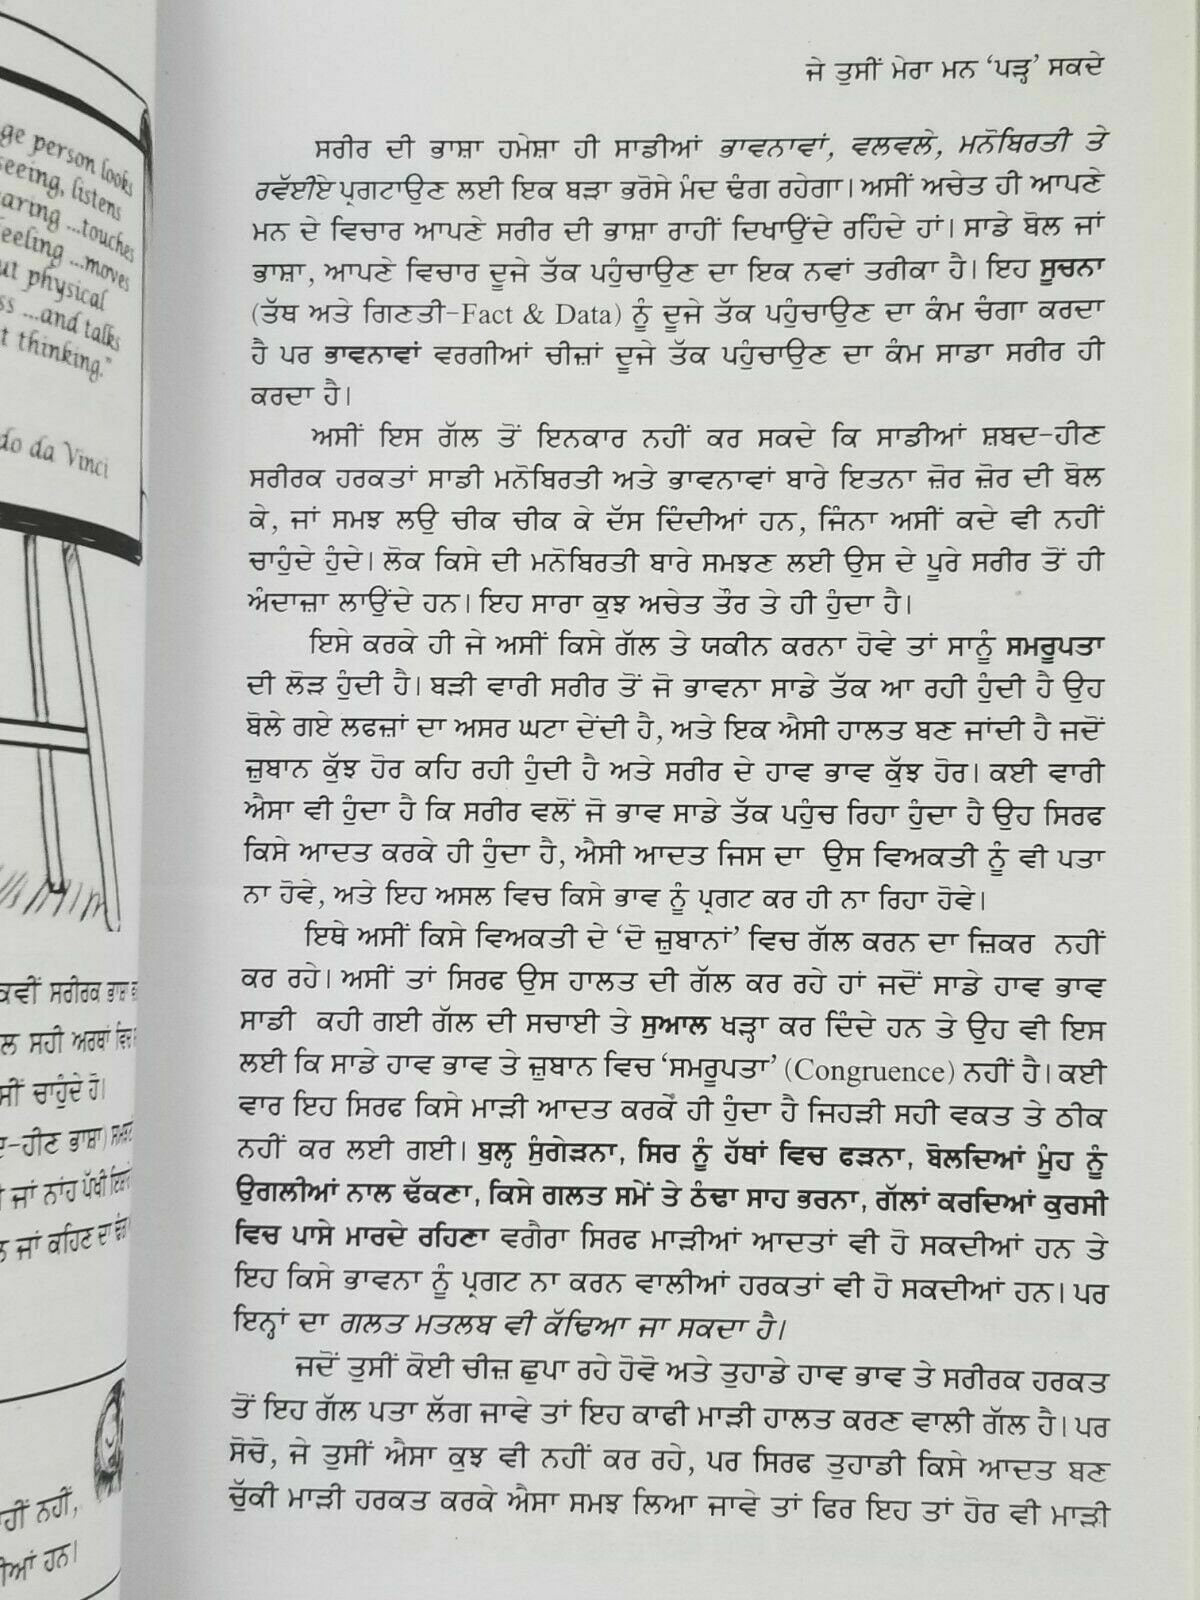 ge person looks
seeing, listens
aring ...touches
feeling ...moves
ut physical
ss ...and talks
t thinking."
do da Vinci
ਕਵੀਂ ਸਰੀਰਕ ਭਾਸ਼ਾ
ਲ ਸਹੀ ਅਰਥਾਂ ਵਿਚ
ਸੀਂ ਚਾਹੁੰਦੇ ਹੋ।
ਦ-ਹੀਣ ਭਾਸ਼ਾ)
ਜਾਂ ਨਾਂਹ ਪੱਖੀ
ਲ ਜਾਂ ਕਹਿਣ ਦਾ ਢੰਗ
ਾਹੀਂ ਨਹੀਂ,
ੀਆਂ ਹਨ।
ਜੇ ਤੁਸੀਂ ਮੇਰਾ ਮਨ 'ਪੜ੍ਹ' ਸਕਦੇ
ਸਰੀਰ ਦੀ ਭਾਸ਼ਾ ਹਮੇਸ਼ਾ ਹੀ ਸਾਡੀਆਂ ਭਾਵਨਾਵਾਂ, ਵਲਵਲੇ, ਮਨੋਬਿਰਤੀ ਤੇ
ਰਵੱਈਏ ਪ੍ਰਗਟਾਉਣ ਲਈ ਇਕ ਬੜਾ ਭਰੋਸੇ ਮੰਦ ਢੰਗ ਰਹੇਗਾ। ਅਸੀਂ ਅਚੇਤ ਹੀ ਆਪਣੇ
ਮਨ ਦੇ ਵਿਚਾਰ ਆਪਣੇ ਸਰੀਰ ਦੀ ਭਾਸ਼ਾ ਰਾਹੀਂ ਦਿਖਾਉਂਦੇ ਰਹਿੰਦੇ ਹਾਂ। ਸਾਡੇ ਬੋਲ ਜਾਂ
ਭਾਸ਼ਾ, ਆਪਣੇ ਵਿਚਾਰ ਦੂਜੇ ਤੱਕ ਪਹੁੰਚਾਉਣ ਦਾ ਇਕ ਨਵਾਂ ਤਰੀਕਾ ਹੈ। ਇਹ ਸੂਚਨਾ
(ਤੱਥ ਅਤੇ ਗਿਣਤੀ-Fact & Data) ਨੂੰ ਦੂਜੇ ਤੱਕ ਪਹੁੰਚਾਉਣ ਦਾ ਕੰਮ ਚੰਗਾ ਕਰਦਾ
ਹੈ ਪਰ ਭਾਵਨਾਵਾਂ ਵਰਗੀਆਂ ਚੀਜ਼ਾਂ ਦੂਜੇ ਤੱਕ ਪਹੁੰਚਾਉਣ ਦਾ ਕੰਮ ਸਾਡਾ ਸਰੀਰ ਹੀ
ਕਰਦਾ ਹੈ।
ਅਸੀਂ ਇਸ ਗੱਲ ਤੋਂ ਇਨਕਾਰ ਨਹੀਂ ਕਰ ਸਕਦੇ ਕਿ ਸਾਡੀਆਂ ਸ਼ਬਦ-ਹੀਣ
ਸਰੀਰਕ ਹਰਕਤਾਂ ਸਾਡੀ ਮਨੋਬਿਰਤੀ ਅਤੇ ਭਾਵਨਾਵਾਂ ਬਾਰੇ ਇਤਨਾ ਜ਼ੋਰ ਜ਼ੋਰ ਦੀ ਬੋਲ
ਕੇ, ਜਾਂ ਸਮਝ ਲਉ ਚੀਕ ਚੀਕ ਕੇ ਦੱਸ ਦਿੰਦੀਆਂ ਹਨ, ਜਿੰਨਾ ਅਸੀਂ ਕਦੇ ਵੀ ਨਹੀਂ
ਚਾਹੁੰਦੇ ਹੁੰਦੇ। ਲੋਕ ਕਿਸੇ ਦੀ ਮਨੋਬਿਰਤੀ ਬਾਰੇ ਸਮਝਣ ਲਈ ਉਸ ਦੇ ਪੂਰੇ ਸਰੀਰ ਤੋਂ ਹੀ
ਅੰਦਾਜ਼ਾ ਲਾਉਂਦੇ ਹਨ। ਇਹ ਸਾਰਾ ਕੁਝ ਅਚੇਤ ਤੌਰ ਤੇ ਹੀ ਹੁੰਦਾ ਹੈ।
ਇਸੇ ਕਰਕੇ ਹੀ ਜੇ ਅਸੀਂ ਕਿਸੇ ਗੱਲ ਤੇ ਯਕੀਨ ਕਰਨਾ ਹੋਵੇ ਤਾਂ ਸਾਨੂੰ ਸਮਰੂਪਤਾ
ਦੀ ਲੋੜ ਹੁੰਦੀ ਹੈ। ਬੜੀ ਵਾਰੀ ਸਰੀਰ ਤੋਂ ਜੋ ਭਾਵਨਾ ਸਾਡੇ ਤੱਕ ਆ ਰਹੀ ਹੁੰਦੀ ਹੈ ਉਹ
ਬੋਲੇ ਗਏ ਲਫਜ਼ਾਂ ਦਾ ਅਸਰ ਘਟਾ ਦੇਂਦੀ ਹੈ, ਅਤੇ ਇਕ ਐਸੀ ਹਾਲਤ ਬਣ ਜਾਂਦੀ ਹੈ ਜਦੋਂ
ਜ਼ੁਬਾਨ ਕੁੱਝ ਹੋਰ ਕਹਿ ਰਹੀ ਹੁੰਦੀ ਹੈ ਅਤੇ ਸਰੀਰ ਦੇ ਹਾਵ ਭਾਵ ਕੁੱਝ ਹੋਰ। ਕਈ ਵਾਰੀ
ਐਸਾ ਵੀ ਹੁੰਦਾ ਹੈ ਕਿ ਸਰੀਰ ਵਲੋਂ ਜੋ ਭਾਵ ਸਾਡੇ ਤੱਕ ਪਹੁੰਚ ਰਿਹਾ ਹੁੰਦਾ ਹੈ ਉਹ ਸਿਰਫ
ਕਿਸੇ ਆਦਤ ਕਰਕੇ ਹੀ ਹੁੰਦਾ ਹੈ, ਐਸੀ ਆਦਤ ਜਿਸ ਦਾ ਉਸ ਵਿਅਕਤੀ ਨੂੰ ਵੀ ਪਤਾ
ਨਾ ਹੋਵੇ, ਅਤੇ ਇਹ ਅਸਲ ਵਿਚ ਕਿਸੇ ਭਾਵ ਨੂੰ ਪ੍ਰਗਟ ਕਰ ਹੀ ਨਾ ਰਿਹਾ ਹੋਵੇ।
ਇਥੇ ਅਸੀਂ ਕਿਸੇ ਵਿਅਕਤੀ ਦੇ 'ਦੋ ਜ਼ੁਬਾਨਾਂ' ਵਿਚ ਗੱਲ ਕਰਨ ਦਾ ਜ਼ਿਕਰ ਨਹੀਂ
ਕਰ ਰਹੇ। ਅਸੀਂ ਤਾਂ ਸਿਰਫ ਉਸ ਹਾਲਤ ਦੀ ਗੱਲ ਕਰ ਰਹੇ ਹਾਂ ਜਦੋਂ ਸਾਡੇ ਹਾਵ ਭਾਵ
ਸਾਡੀ ਕਹੀ ਗਈ ਗੱਲ ਦੀ ਸਚਾਈ ਤੇ ਸੁਆਲ ਖੜ੍ਹਾ ਕਰ ਦਿੰਦੇ ਹਨ ਤੇ ਉਹ ਵੀ ਇਸ
ਲਈ ਕਿ ਸਾਡੇ ਹਾਵ ਭਾਵ ਤੇ ਜ਼ੁਬਾਨ ਵਿਚ 'ਸਮਰੂਪਤਾ' (Congruence) ਨਹੀਂ ਹੈ। ਕਈ
ਵਾਰ ਇਹ ਸਿਰਫ ਕਿਸੇ ਮਾੜੀ ਆਦਤ ਕਰਕੇ ਹੀ ਹੁੰਦਾ ਹੈ ਜਿਹੜੀ ਸਹੀ ਵਕਤ ਤੇ ਠੀਕ
ਨਹੀਂ ਕਰ ਲਈ ਗਈ। ਬੁਲ੍ਹ ਸੁੰਗੇੜਨਾ, ਸਿਰ ਨੂੰ ਹੱਥਾਂ ਵਿਚ ਫੜਨਾ, ਬੋਲਦਿਆਂ ਮੂੰਹ ਨੂੰ
ਉਗਲੀਆਂ ਨਾਲ ਢੱਕਣਾ, ਕਿਸੇ ਗਲਤ ਸਮੇਂ ਤੇ ਠੰਢਾ ਸਾਹ ਭਰਨਾ, ਗੱਲਾਂ ਕਰਦਿਆਂ ਕੁਰਸੀ
ਵਿਚ ਪਾਸੇ ਮਾਰਦੇ ਰਹਿਣਾ ਵਗੈਰਾ ਸਿਰਫ ਮਾੜੀਆਂ ਆਦਤਾਂ ਵੀ ਹੋ ਸਕਦੀਆਂ ਹਨ ਤੇ
ਇਹ ਕਿਸੇ ਭਾਵਨਾ ਨੂੰ ਪ੍ਰਗਟ ਨਾ ਕਰਨ ਵਾਲੀਆਂ ਹਰਕਤਾਂ ਵੀ ਹੋ ਸਕਦੀਆਂ ਹਨ। ਪਰ
ਇਨ੍ਹਾਂ ਦਾ ਗਲਤ ਮਤਲਬ ਵੀ ਕੱਢਿਆ ਜਾ ਸਕਦਾ ਹੈ।
ਜਦੋਂ ਤੁਸੀਂ ਕੋਈ ਚੀਜ਼ ਛੁਪਾ ਰਹੇ ਹੋਵੋ ਅਤੇ ਤੁਹਾਡੇ ਹਾਵ ਭਾਵ ਤੇ ਸਰੀਰਕ ਹਰਕਤ
ਤੋਂ ਇਹ ਗੱਲ ਪਤਾ ਲੱਗ ਜਾਵੇ ਤਾਂ ਇਹ ਕਾਫੀ ਮਾੜੀ ਹਾਲਤ ਕਰਣ ਵਾਲੀ ਗੱਲ ਹੈ। ਪਰ
ਸੋਚੋ, ਜੇ ਤੁਸੀਂ ਐਸਾ ਕੁਝ ਵੀ ਨਹੀਂ ਕਰ ਰਹੇ, ਪਰ ਸਿਰਫ ਤੁਹਾਡੀ ਕਿਸੇ ਆਦਤ ਬਣ
ਚੁੱਕੀ ਮਾੜੀ ਹਰਕਤ ਕਰਕੇ ਐਸਾ ਸਮਝ ਲਿਆ ਜਾਵੇ ਤਾਂ ਫਿਰ ਇਹ ਤਾਂ ਹੋਰ ਵੀ ਮਾੜੀ